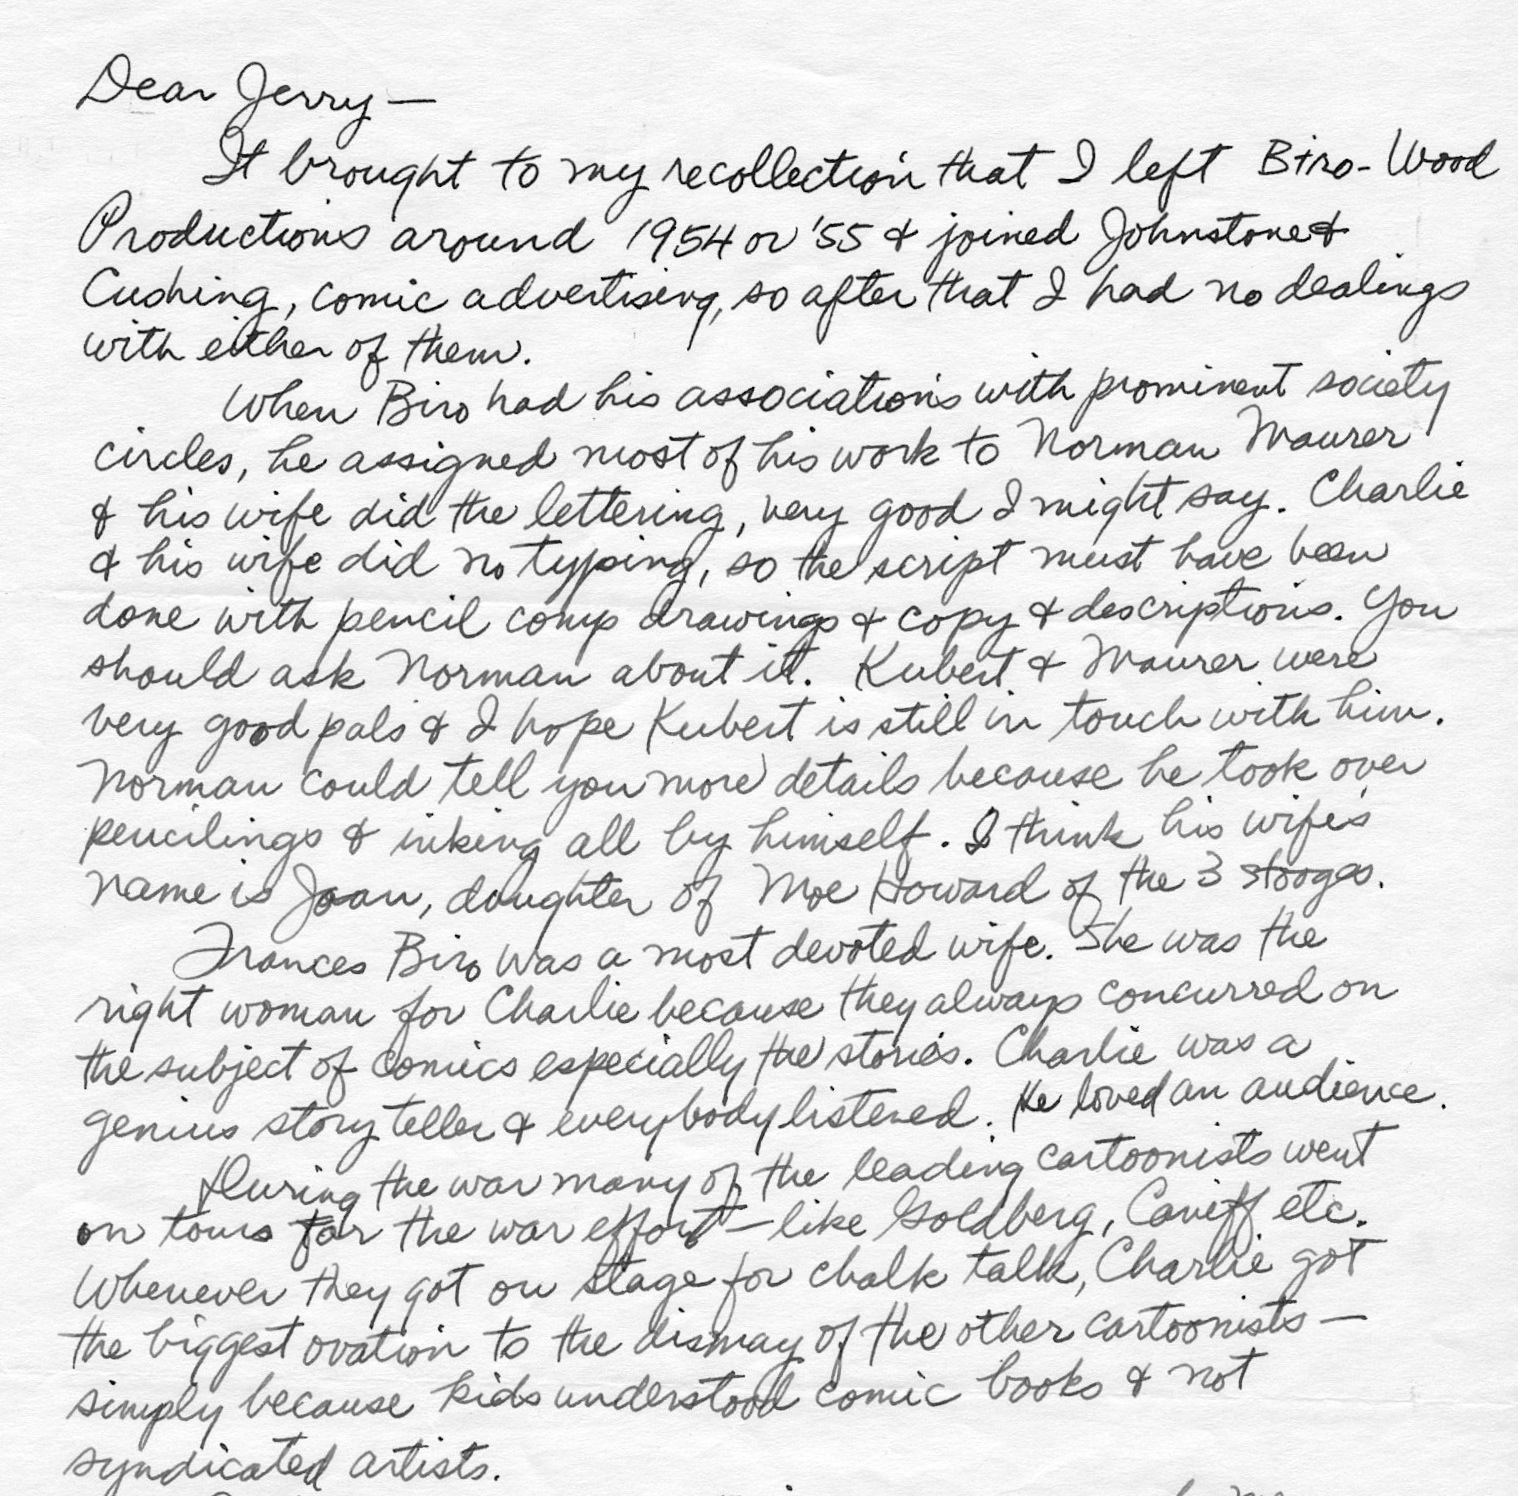 Dear Jerry —
It brought to my recollection that I left Biro-Wood
Productions around 1954 or '55 & joined Johnstone &
Cushing, comic advertising, so after that I had no dealings
with either of them.
When Biro had his associations with prominent society
circles, he assigned most of his work to Norman Maurer
& his wife did the lettering, very good I might say. Charlie
& his wife did no typing, so the script must have been
done with pencil comp drawings & copy & descriptions. You
should ask Norman about it. Kubert & Maurer were
very good pals & I hope Kubert is still in touch with him.
Norman could tell you more details because he took over
pencilings & inking all by himself. I think his wife's
name is Joan, daughter of Moe Howard of the 3 stooges.
Frances Biro was a most devoted wife. She was the
right woman for Charlie because they always concurred on
the subject of comics especially the stories. Charlie was a
genius story teller & everybody listened. He loved an audience.
During the war many of the leading cartoonists went
on tours for the war effort — like Goldberg, Caniff etc.
Whenever they got on stage for chalk talk, Charlie got
the biggest ovation to the dismay of the other cartoonists —
simply because kids understood comic books & not
syndicated artists.